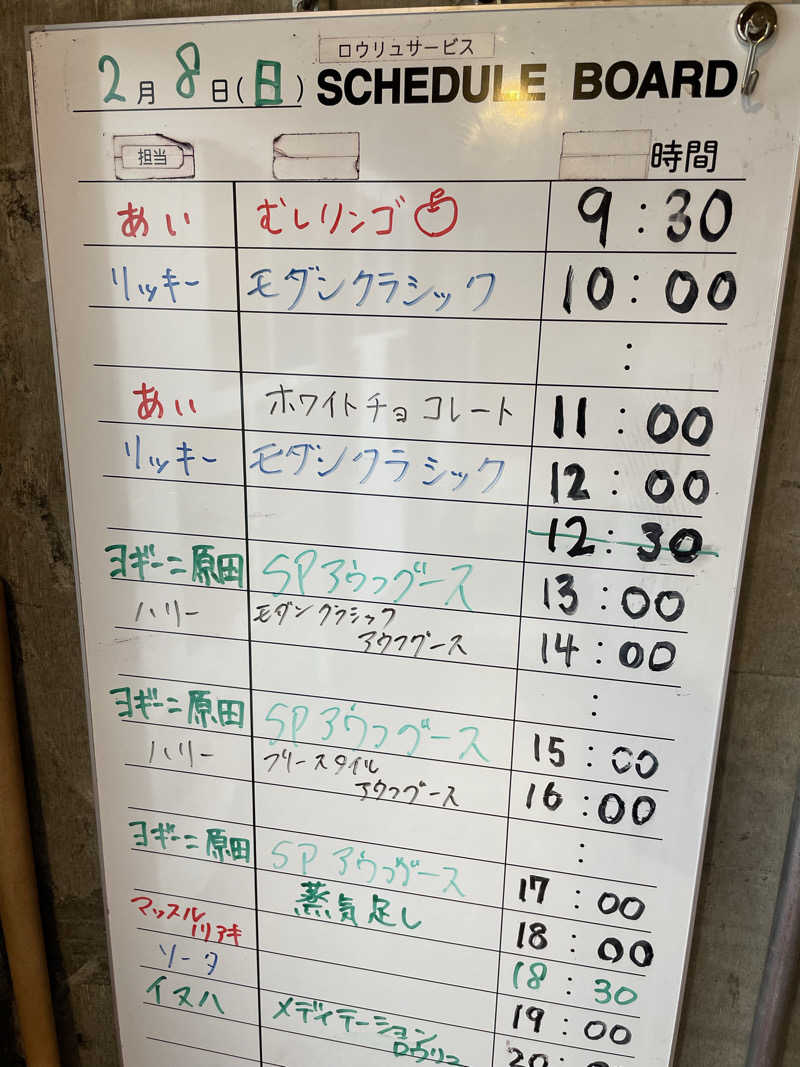 ロウリュサービス
2月8日(日) SCHEDULE BOARD
担当 時間
あい むしリンゴ 9:30
リッキー モダンクラシック 10:00
:
あい ホワイトチョコレート 11:00
リッキー モダンクラシック 12:00
12:30
ヨギーニ原田 SPアウフグース 13:00
ハリー モダンクラシック
アウフグース 14:00
:
ヨギーニ原田 SPアウフグース 15:00
ハリー フリースタイル
アウフグース 16:00
:
ヨギーニ原田 SPアウフグース 17:00
蒸気足し 18:00
マッスル
ソータ 18:30
イヌハ メディテーション
ロウリュ 19:00
20: